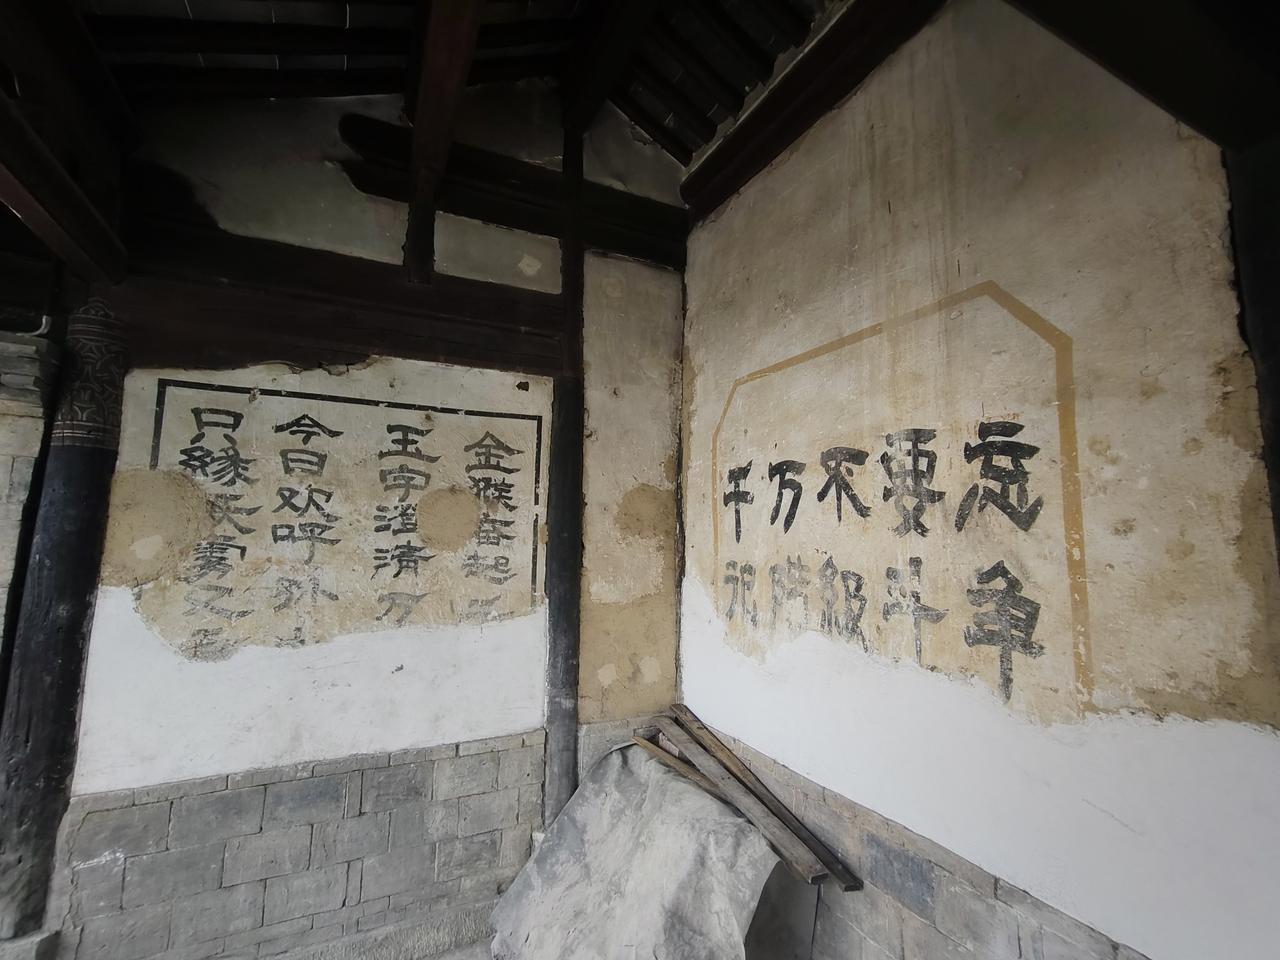 金猴奋起
玉宇澄清万
今日欢呼孙
只缘妖雾又
千万不要忘
记阶级斗争